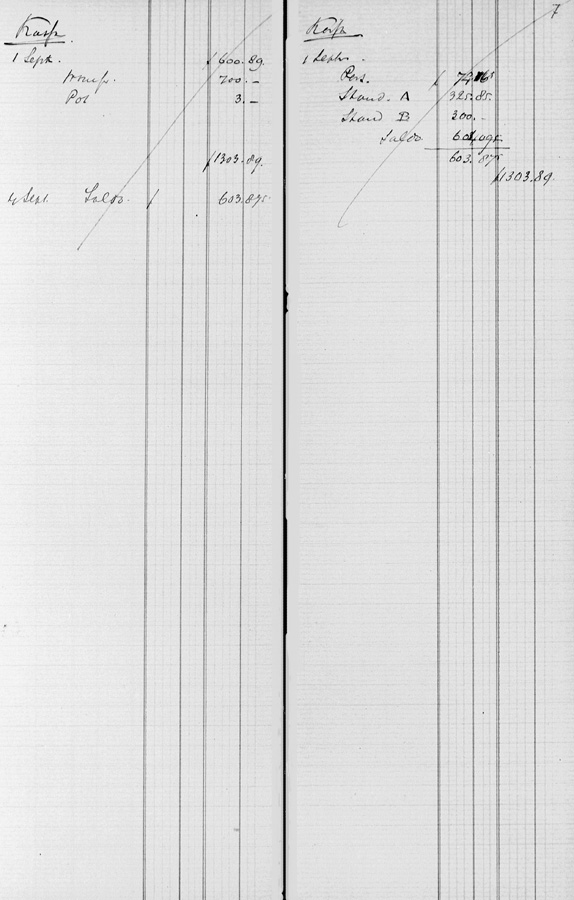 Kasp.
1 Sept. f 600.89.
700.—
Pot 3.—
f 1303.89.
4 Sept. Saldo f 603.875
7
Kasp
1 Sept.
Pers. f 74.165
Stand. A 325.85.
Stand B 300.—
Saldo
603.875
f 1303.89.